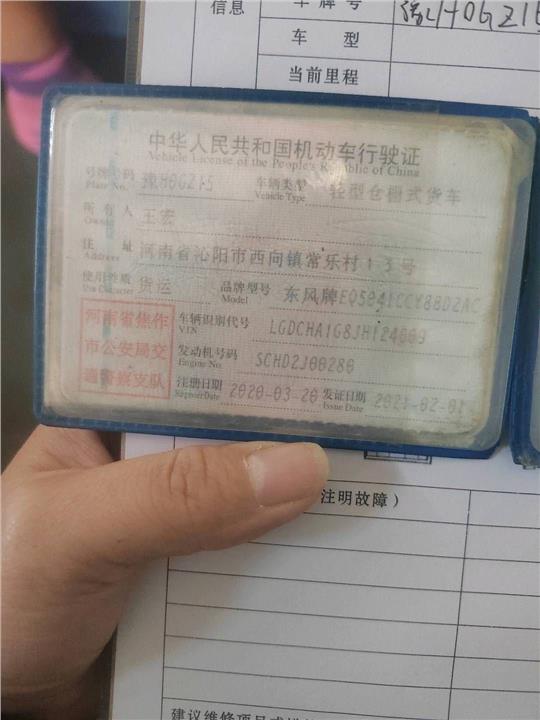 信息
车牌号
车 型
当前里程
中华人民共和国机动车行驶证
Vehicle License of the People's Republic of China
号牌号码 豫H0GZ15 车辆类型 轻型仓栅式货车
Plate No. Vehicle Type
所有人 王宏
Owner
住址 河南省沁阳市西向镇常乐村113号
Address
使用性质 货运 品牌型号 东风牌EQ5041CCY8BD2AC
Use Character Model
河南省焦作
市公安局交
通警察支队
车辆识别代号 LGDCHA1G8JH124009
VIN
发动机号码 SCHD2J00280
Engine No.
注册日期 2020-03-20 发证日期 2021-02-01
Register Date Issue Date
注明故障）